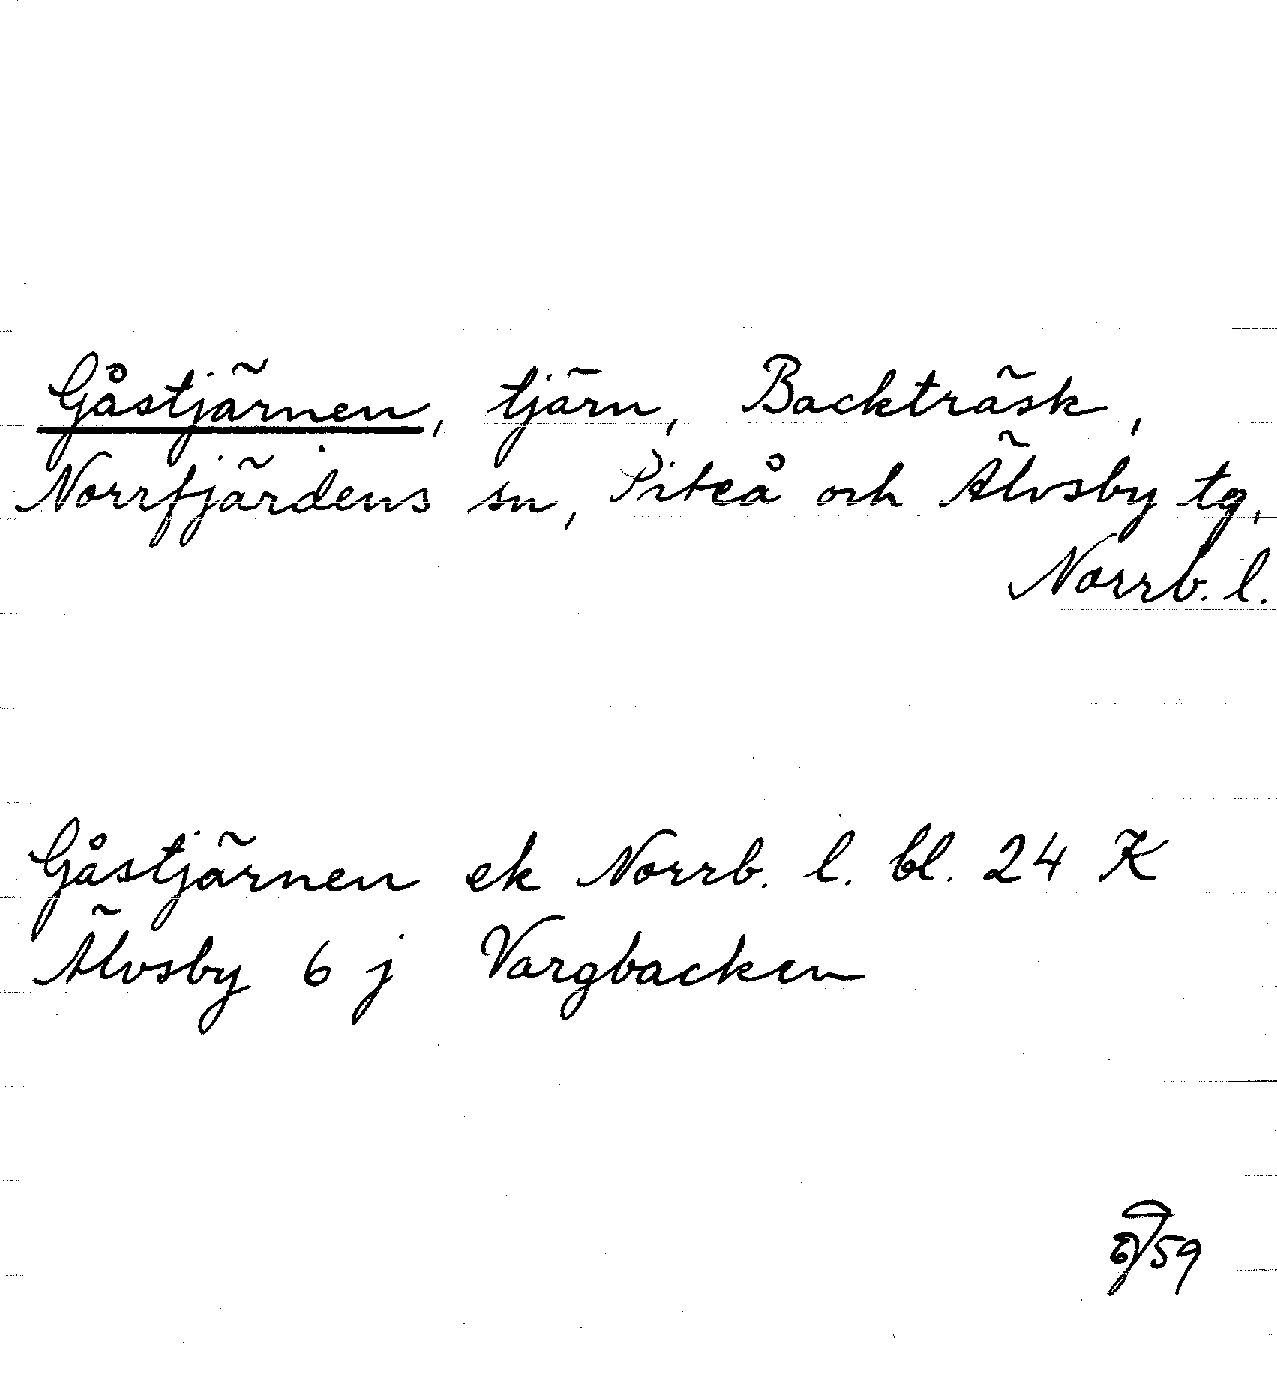 Gåstjärnen, tjärn, Backträsk,
Norrfjärdens sn, Piteå och Älvsby tg,
Norrb. l.
Gåstjärnen ek Norrb. l. bl. 24 K
Älvsby 6 j Vargbacken
59